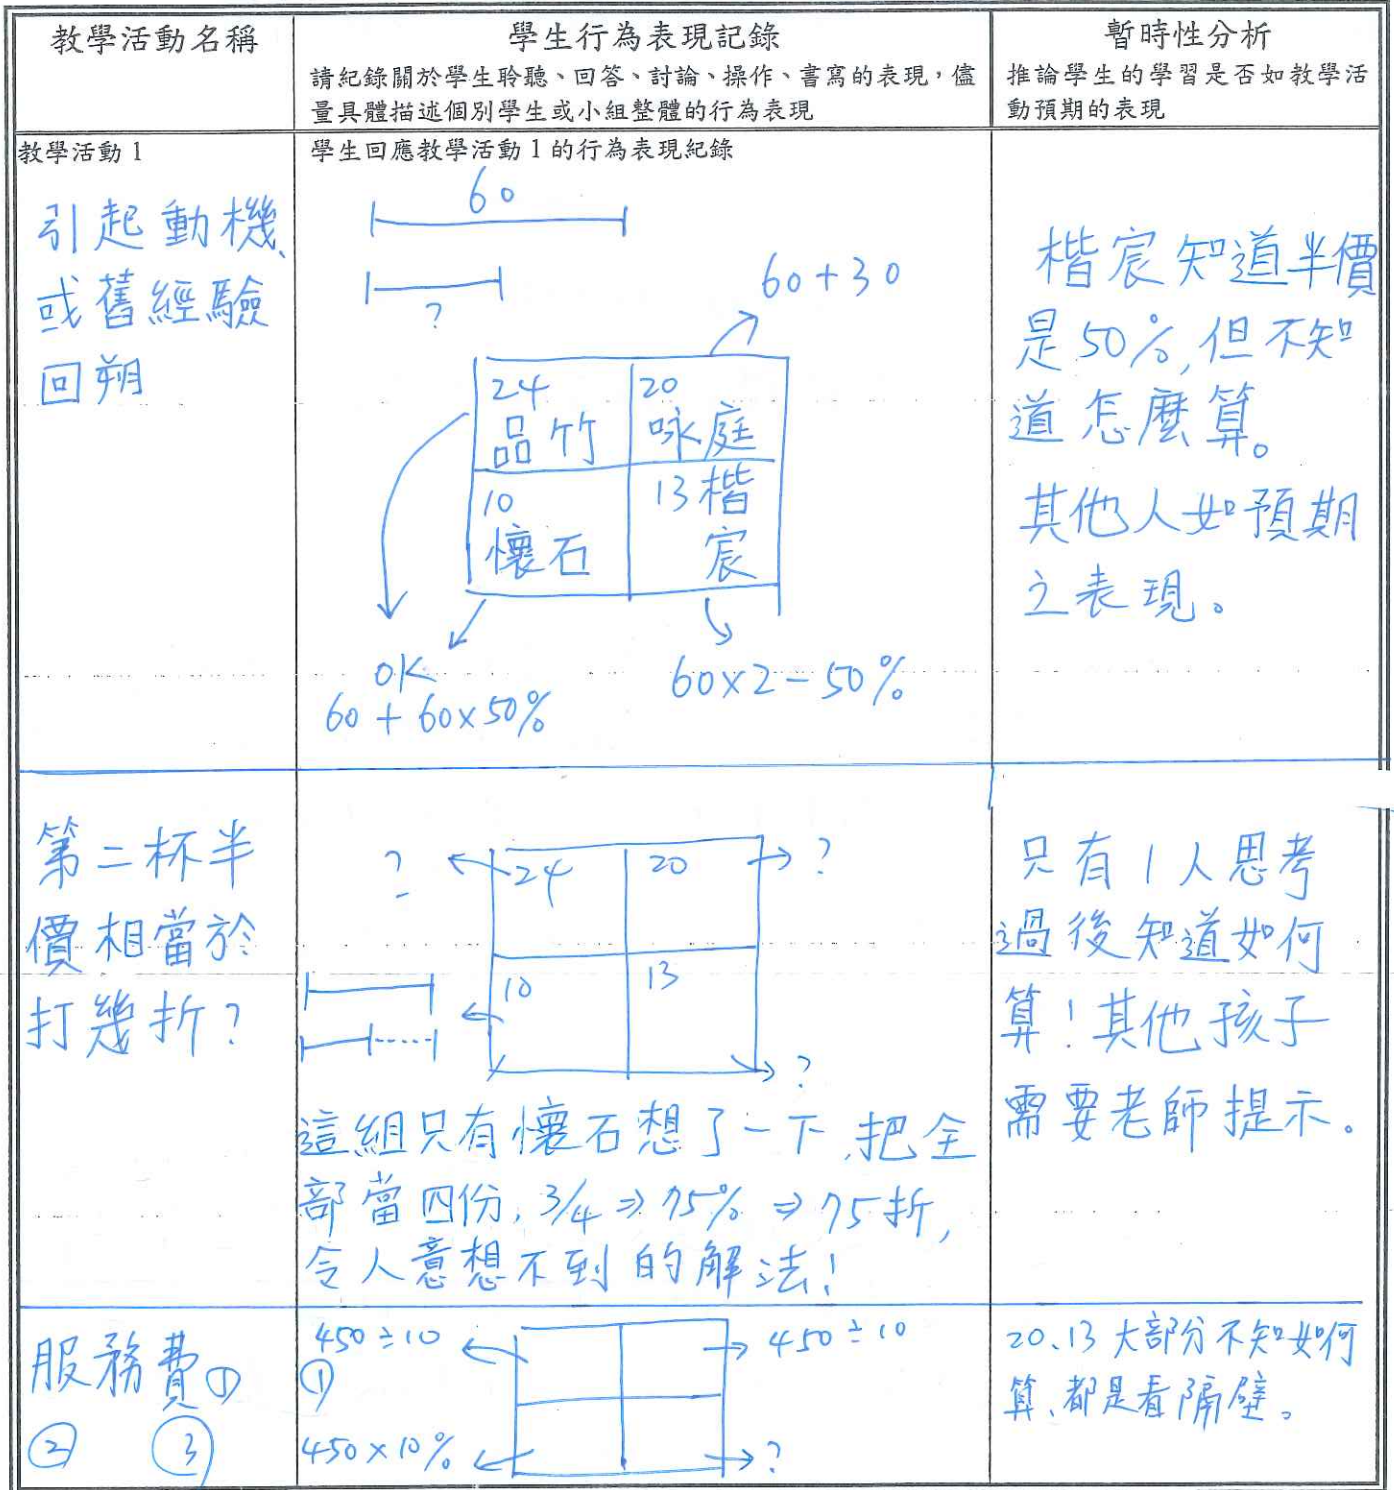 教學活動名稱
學生行為表現記錄
請紀錄關於學生聆聽、回答、討論、操作、書寫的表現，儘
量具體描述個別學生或小組整體的行為表現
暫時性分析
推論學生的學習是否如教學活
動預期的表現
教學活動1
引起動機、
或舊經驗
回朔
學生回應教學活動1的行為表現紀錄
60
?
60+30
24
品竹
20
咏庭
10
懷石
13楷
宸
OK
60+60×50%
60×2-50%
楷宸知道半價
是50%,但不知
道怎麼算。
其他人如預期
之表現。
第二杯半
價相當於
打幾折?
?
24
20
?
10
13
?
這組只有懷石想了一下,把全
部當四份,3/4⇒75%⇒75折,
令人意想不到的解法!
只有1人思考
過後知道如何
算!其他孩子
需要老師提示。
服務費①
② ③
450÷10
①
450÷10
450×10%
?
20、13大部分不知如何
算、都是看隔壁。